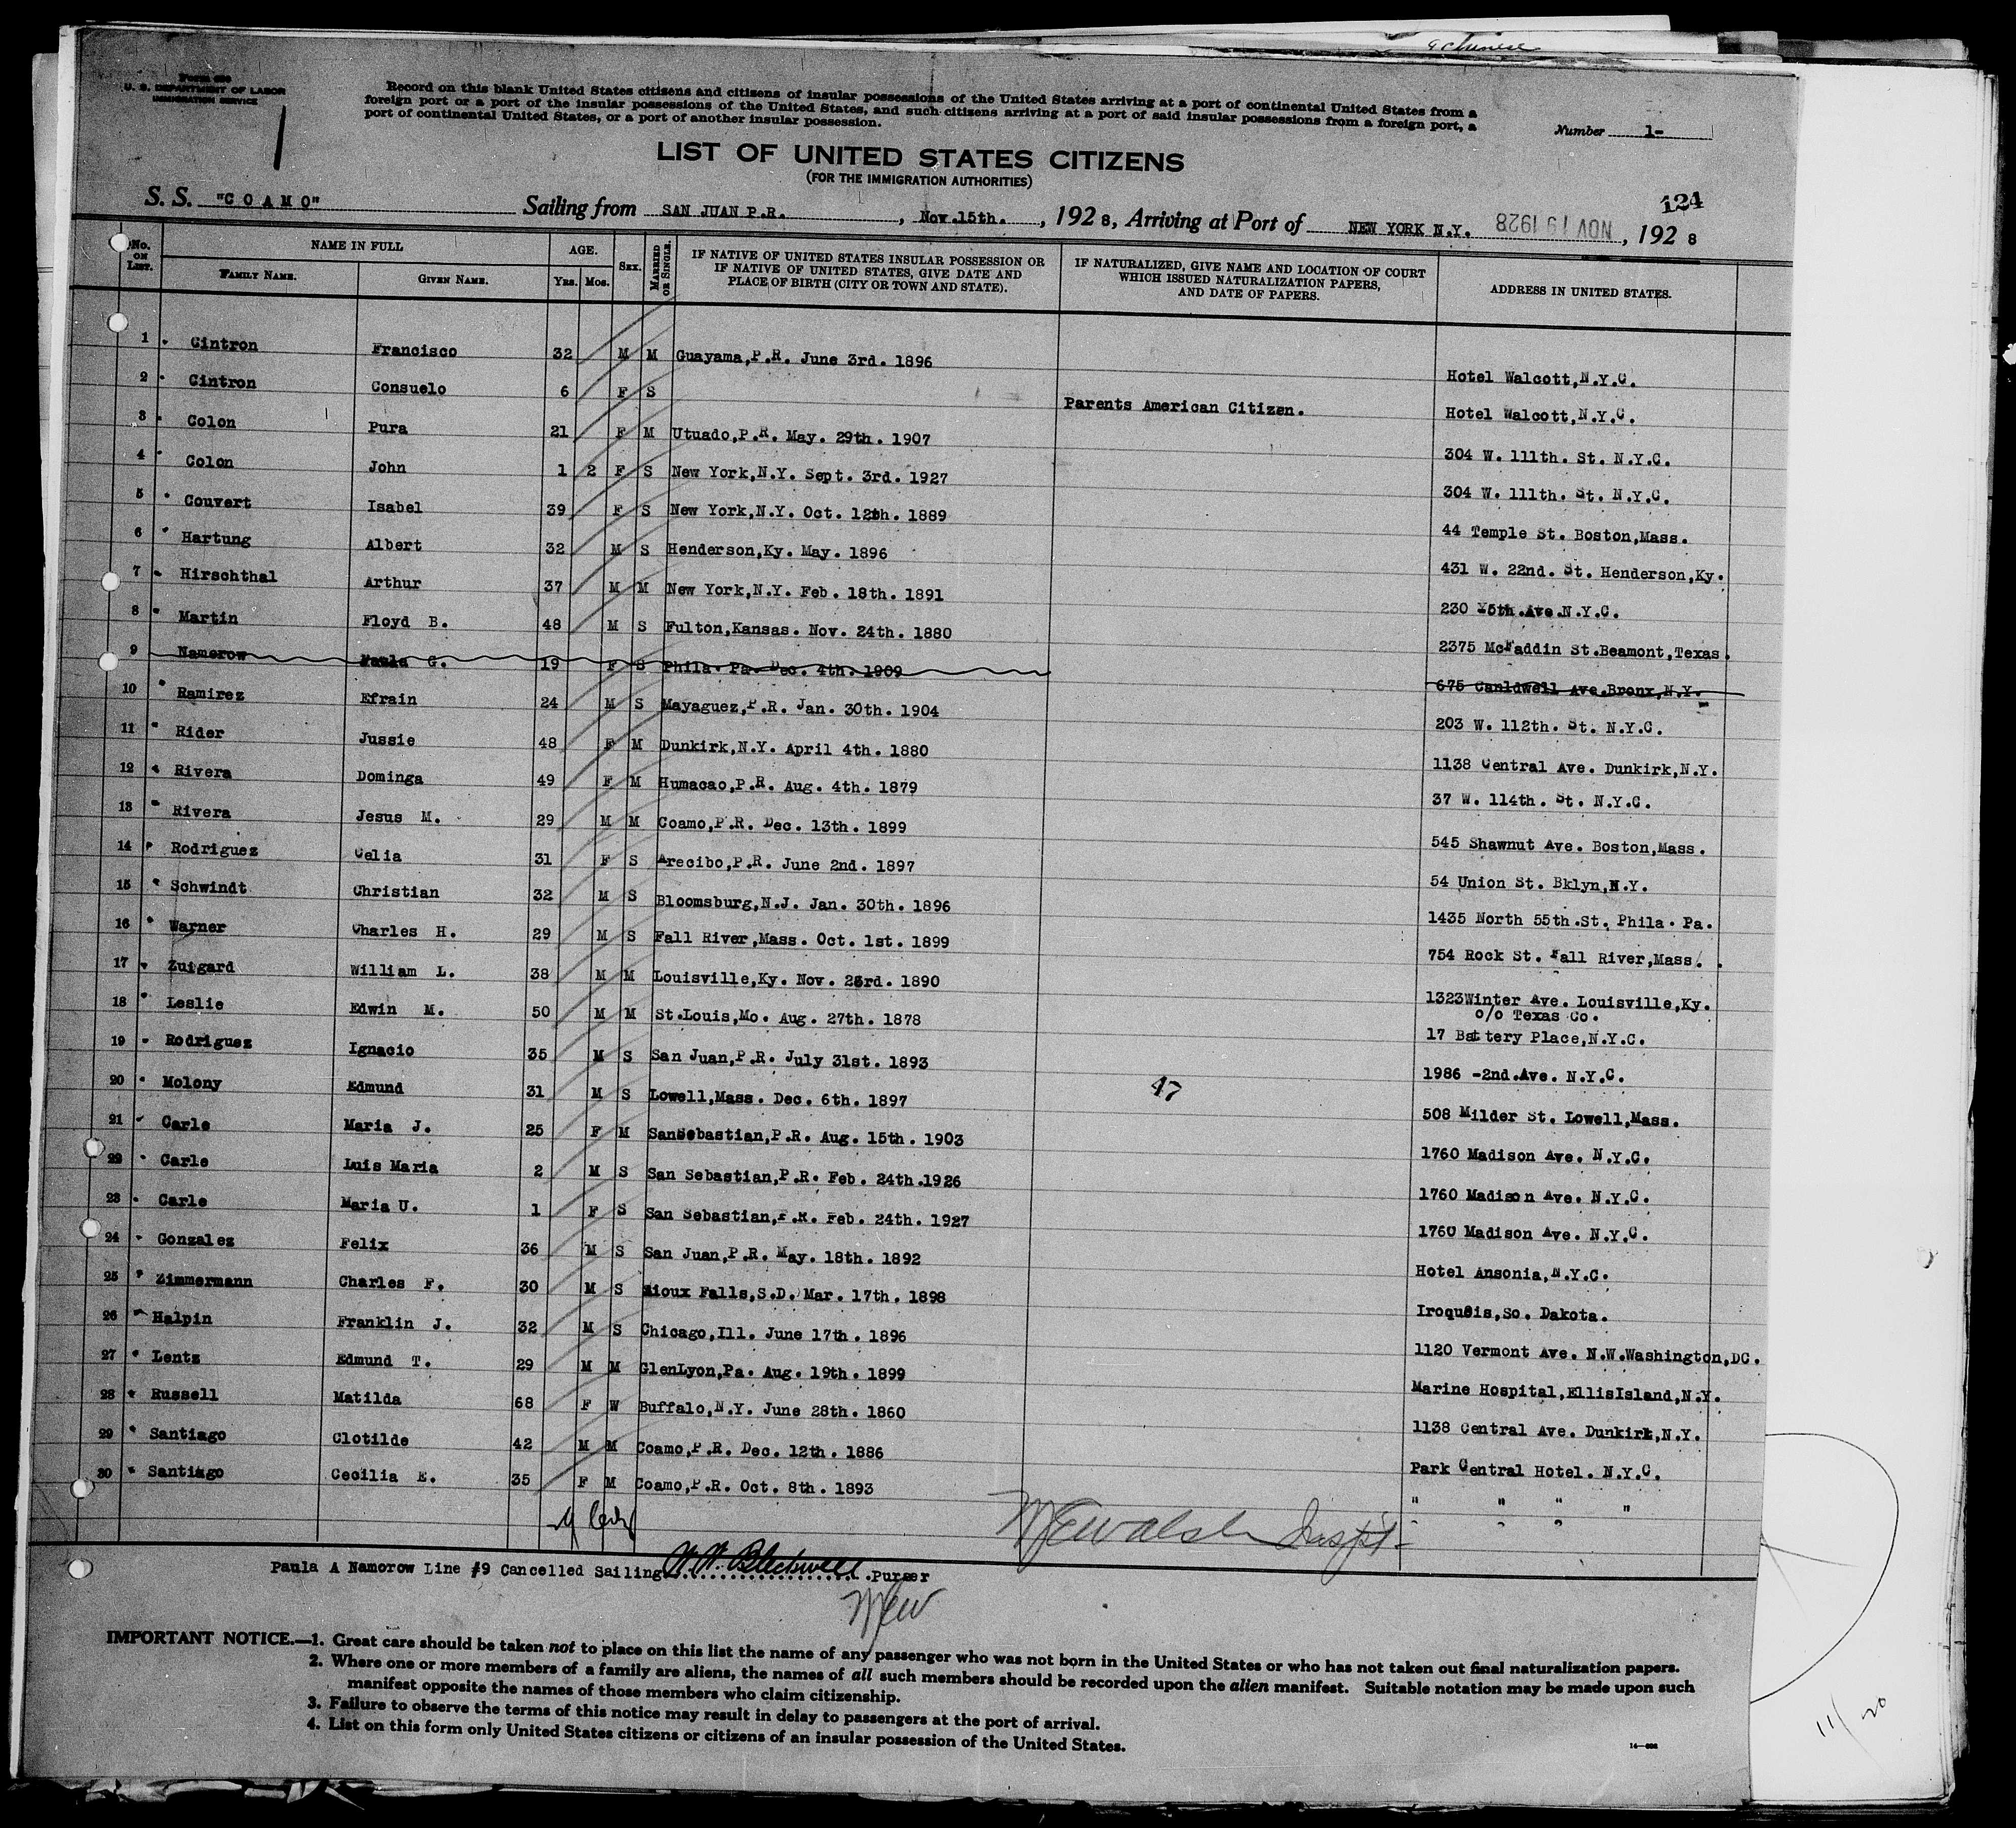 & Chinese
Form 630
U. S. DEPARTMENT OF LABOR
IMMIGRATION SERVICE
Record on this blank United States citizens and citizens of insular possessions of the United States arriving at a port of continental United States from a
foreign port or a port of the insular possessions of the United States, and such citizens arriving at a port of said insular possessions from a foreign port, a
port of continental United States, or a port of another insular possession.
Number 1-
LIST OF UNITED STATES CITIZENS
(FOR THE IMMIGRATION AUTHORITIES)
124
S. S. "COAMO" Sailing from SAN JUAN P.R. , Nov.15th. , 1928, Arriving at Port of NEW YORK N.Y. NOV 19 1928 , 1928
No. ON LIST. NAME IN FULL FAMILY NAME. GIVEN NAME. AGE. Yrs. Mos. SEX. MARRIED OR SINGLE. IF NATIVE OF UNITED STATES INSULAR POSSESSION OR IF NATIVE OF UNITED STATES, GIVE DATE AND PLACE OF BIRTH (CITY OR TOWN AND STATE). IF NATURALIZED, GIVE NAME AND LOCATION OF COURT WHICH ISSUED NATURALIZATION PAPERS, AND DATE OF PAPERS. ADDRESS IN UNITED STATES.
1 Cintron Francisco 32 M M Guayama,P.R. June 3rd. 1896 Hotel Walcott,N.Y.C.
2 Cintron Consuelo 6 F S Parents American Citizen. Hotel Walcott,N.Y.C.
3 Colon Pura 21 F M Utuado,P.R. May. 29th. 1907 304 W. 111th. St. N.Y.C.
4 Colon John 1 2 F S New York,N.Y. Sept. 3rd. 1927 304 W. 111th. St. N.Y.C.
5 Couvert Isabel 39 F S New York,N.Y. Oct. 12th. 1889 44 Temple St. Boston,Mass.
6 Hartung Albert 32 M S Henderson,Ky. May. 1896 431 W. 22nd. St. Henderson,Ky.
7 Hirschthal Arthur 37 M M New York,N.Y. Feb. 18th. 1891 230 5th.Ave.N.Y.C.
8 Martin Floyd B. 48 M S Fulton,Kansas. Nov. 24th. 1880 2375 McFaddin St.Beamont,Texas.
9 Namorow Paula G. 19 F S Phila. Pa. Dec. 4th. 1909 675 Canldwell Ave.Bronx,N.Y.
10 Ramirez Efrain 24 M S Mayaguez,P.R. Jan. 30th. 1904 203 W. 112th. St. N.Y.C.
11 Rider Jussie 48 F M Dunkirk,N.Y. April 4th. 1880 1138 Central Ave. Dunkirk,N.Y.
12 Rivera Dominga 49 F M Humacao,P.R. Aug. 4th. 1879 37 W. 114th. St. N.Y.C.
13 Rivera Jesus M. 29 M M Coamo,P.R. Dec. 13th. 1899 545 Shawnut Ave. Boston,Mass.
14 Rodriguez Celia 31 F S Arecibo,P.R. June 2nd. 1897 54 Union St. Bklyn,N.Y.
15 Schwindt Christian 32 M S Bloomsburg,N.J. Jan. 30th. 1896 1435 North 55th.St. Phila. Pa.
16 Warner Charles H. 29 M S Fall River,Mass. Oct. 1st. 1899 754 Rock St. Fall River,Mass.
17 Zuigard William L. 38 M M Louisville,Ky. Nov. 23rd. 1890 1323Winter Ave. Louisville,Ky.
18 Leslie Edwin M. 50 M M St.Louis,Mo. Aug. 27th. 1878 c/o Texas Co. 17 Battery Place,N.Y.C.
19 Rodriguez Ignacio 35 M S San Juan,P.R. July 31st. 1893 1986 -2nd.Ave. N.Y.C.
20 Molony Edmund 31 M S Lowell,Mass. Dec. 6th. 1897 47 508 Wilder St. Lowell,Mass.
21 Carle Maria J. 25 F M SanSebastian,P.R. Aug. 15th. 1903 1760 Madison Ave. N.Y.C.
22 Carle Luis Maria 2 M S San Sebastian,P.R. Feb. 24th.1926 1760 Madison Ave. N.Y.C.
23 Carle Maria U. 1 F S San Sebastian,P.R. Feb. 24th. 1927 1760 Madison Ave. N.Y.C.
24 Gonzalez Felix 36 M S San Juan,P.R. May. 18th. 1892 Hotel Ansonia,N.Y.C.
25 Zimmermann Charles F. 30 M S Sioux Falls,S.D. Mar. 17th. 1898 Iroquois,So. Dakota.
26 Halpin Franklin J. 32 M S Chicago,Ill. June 17th. 1896 1120 Vermont Ave. N.W.Washington,DC.
27 Lentz Edmund T. 29 M M GlenLyon,Pa. Aug. 19th. 1899 Marine Hospital,EllisIsland,N.Y.
28 Russell Matilda 68 F W Buffalo,N.Y. June 28th. 1860 1138 Central Ave. Dunkirk,N.Y.
29 Santiago Clotilde 42 M M Coamo,P.R. Dec. 12th. 1886 Park Central Hotel. N.Y.C.
30 Santiago Cecilia E. 35 F M Coamo,P.R. Oct. 8th. 1893 " " " "
MEWalsh Inspt-
Paula A Namorow Line #9 Cancelled Sailing W.W. Blackwell Purser
MEW
IMPORTANT NOTICE.—1. Great care should be taken not to place on this list the name of any passenger who was not born in the United States or who has not taken out final naturalization papers.
2. Where one or more members of a family are aliens, the names of all such members should be recorded upon the alien manifest. Suitable notation may be made upon such
manifest opposite the names of those members who claim citizenship.
3. Failure to observe the terms of this notice may result in delay to passengers at the port of arrival.
4. List on this form only United States citizens or citizens of an insular possession of the United States.
11/20